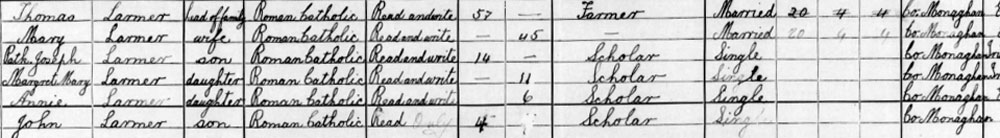 Thomas Larmer head of family Roman Catholic Read and write 57 — Farmer Married 20 4 4 Co. Monaghan
Mary Larmer wife Roman Catholic Read and write — 45 — Married 20 4 4 Co. Monaghan
Patk Joseph Larmer son Roman Catholic Read and write 14 — Scholar Single Co. Monaghan
Margret Mary Larmer daughter Roman Catholic Read and write — 11 Scholar Single Co. Monaghan
Annie Larmer daughter Roman Catholic Read and write 6 Scholar Single Co. Monaghan
John Larmer son Roman Catholic Read Only 4 Scholar Single Co. Monaghan